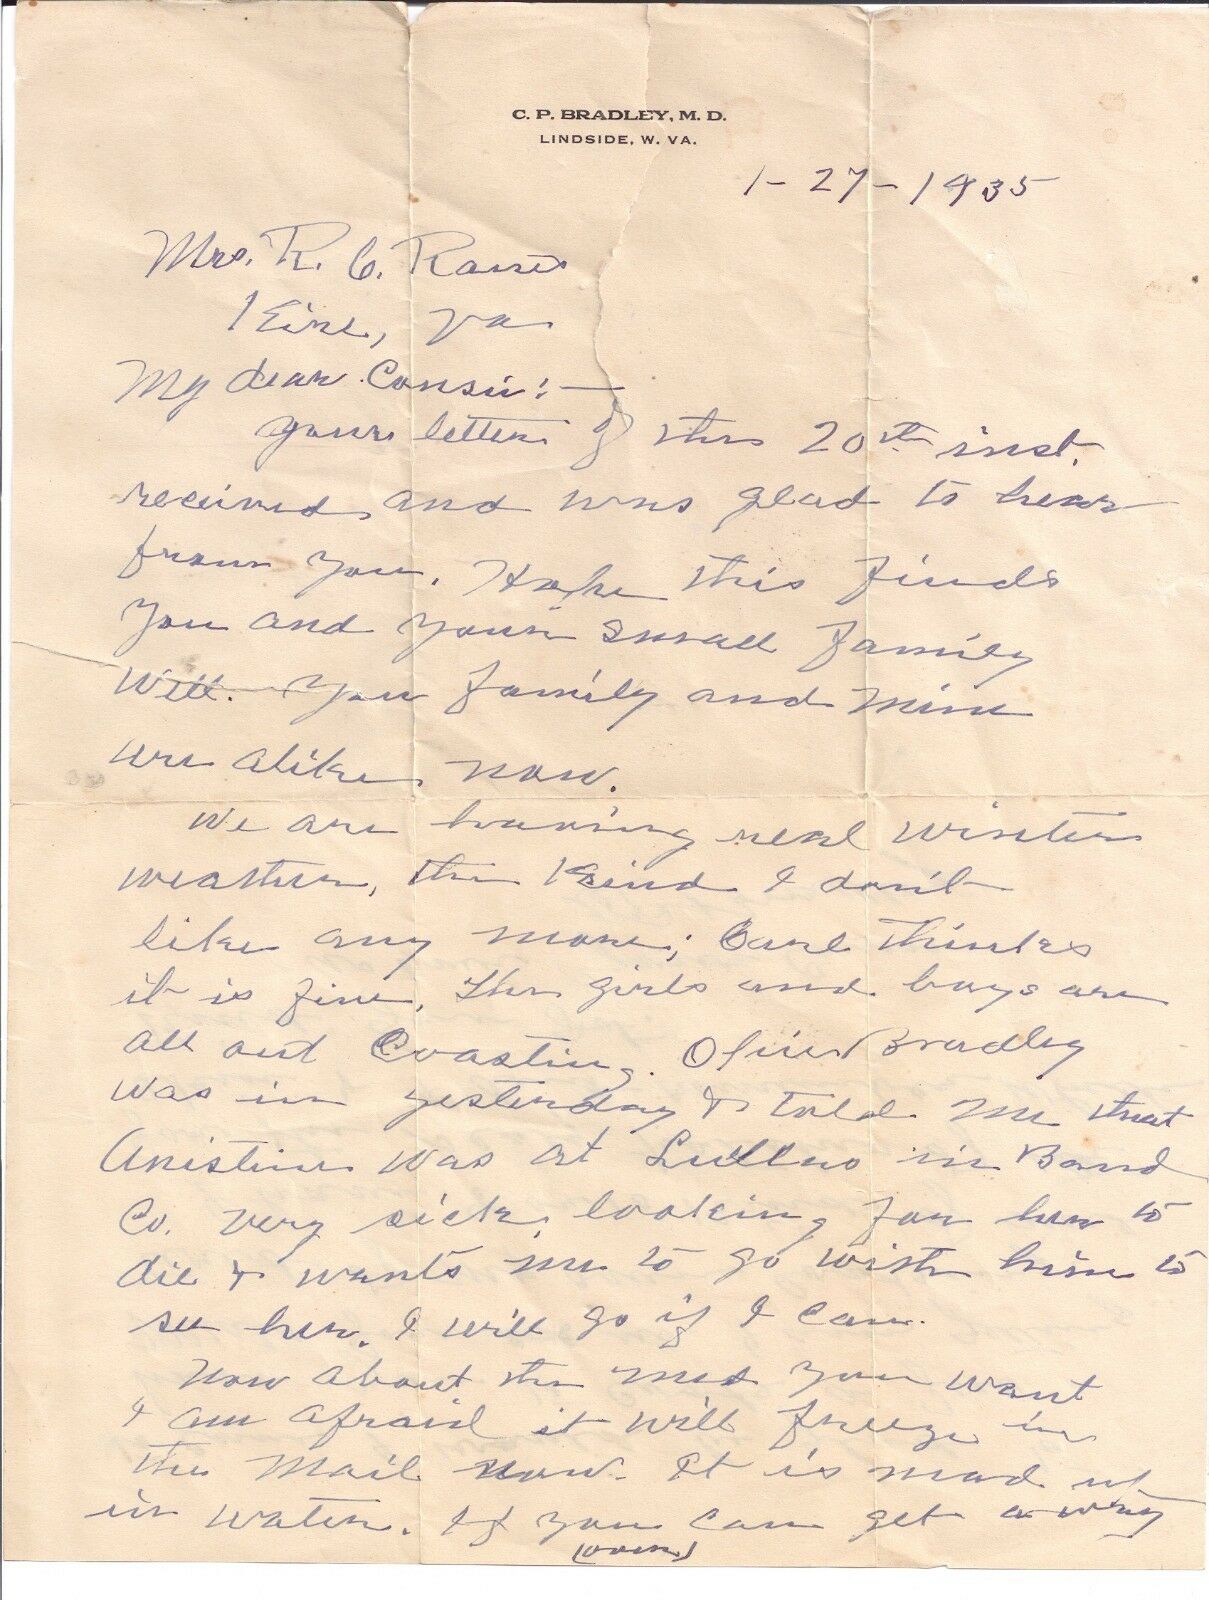 C. P. BRADLEY, M. D.
LINDSIDE, W. VA.
1-27-1935
Mrs. R. C.
Va
My dear Cousin:—
Your letter of the 20th inst.
received and was glad to hear
from you. Hope this finds
you and your small family
well. You family and mine
are alike now.
We are having real winter
weather, the kind I don't
like any more; Carl thinks
it is fine. The girls and boys are
all out Coasting. Bradley
was in yesterday & told me that
was at in Band
Co. very sick, looking for her to
die & wants me to go with him to
see her. I will go if I can.
Now about the med you want
I am afraid it will freeze in
the Mail now. It is mad up
in water. If you can get a way
(over)